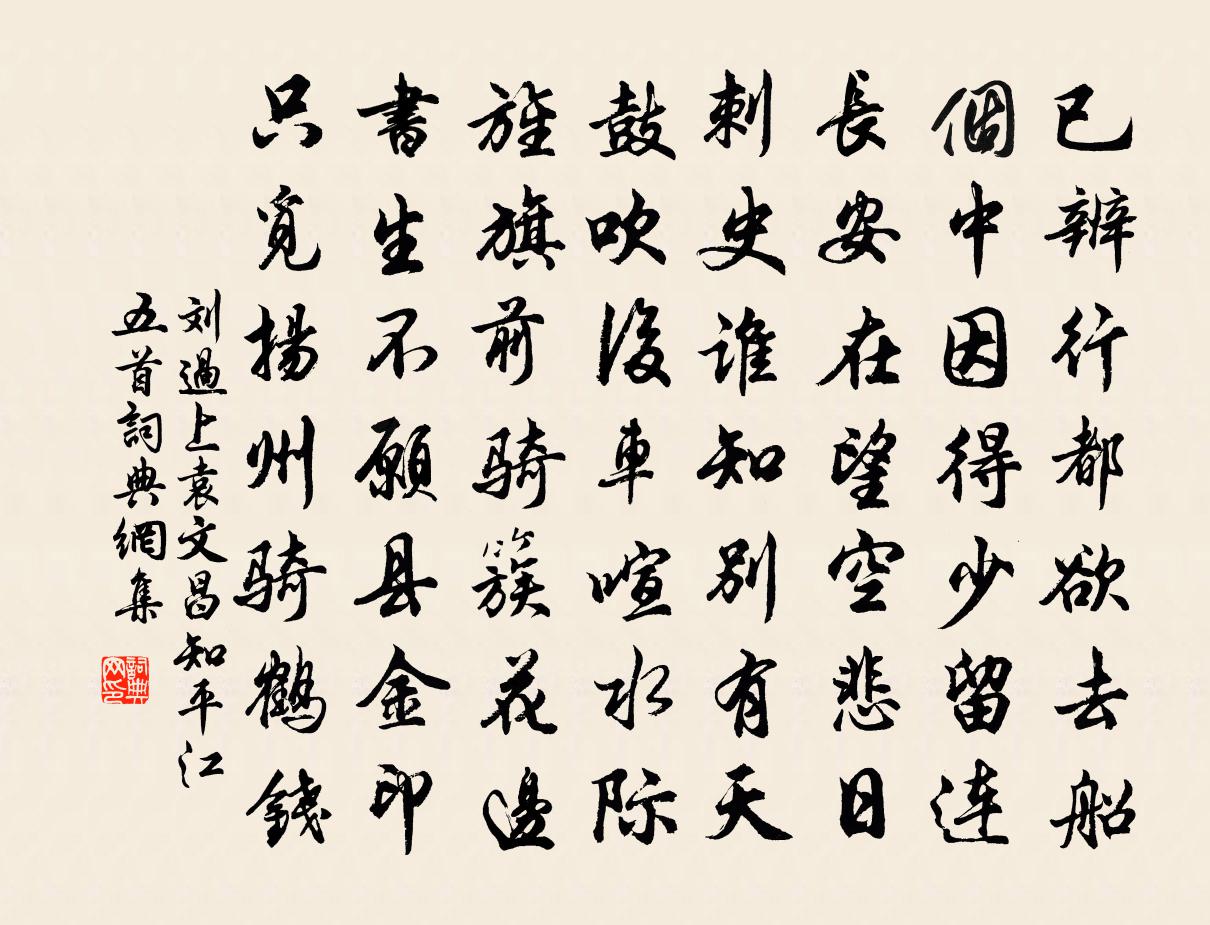 已辦行都欲去船
個中因得少留連
長安在望空悲日
刺史誰知別有天
鼓吹後車喧水际
旌旗前骑簇花邊
書生不願县金印
只覓揚州骑鶴錢
刘過上袁文昌知平江
五首詞典網集
詞典
网印